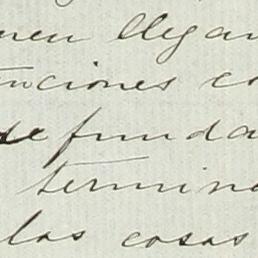 nen llegan
nciones co
se funda
termina
las cosas